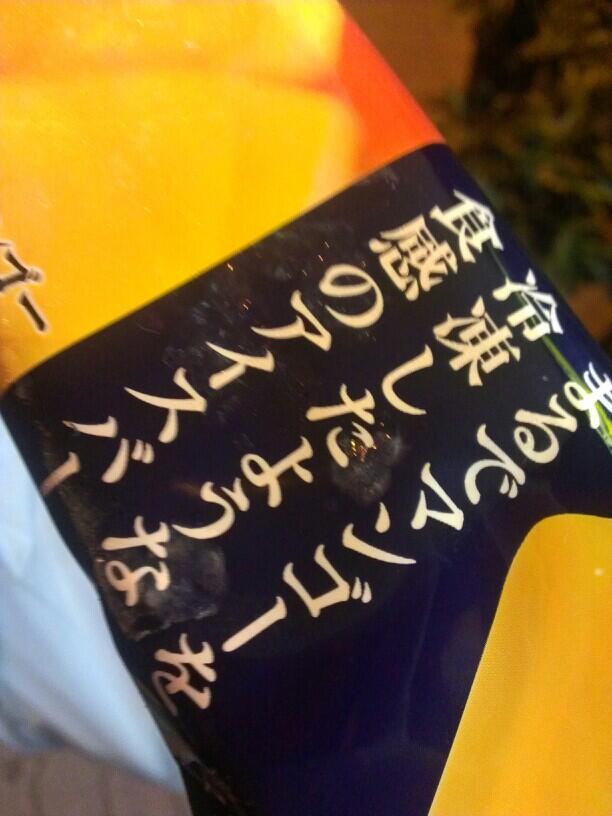 まるでマンゴーを
冷凍したような
食感のアイスバー
ゴー